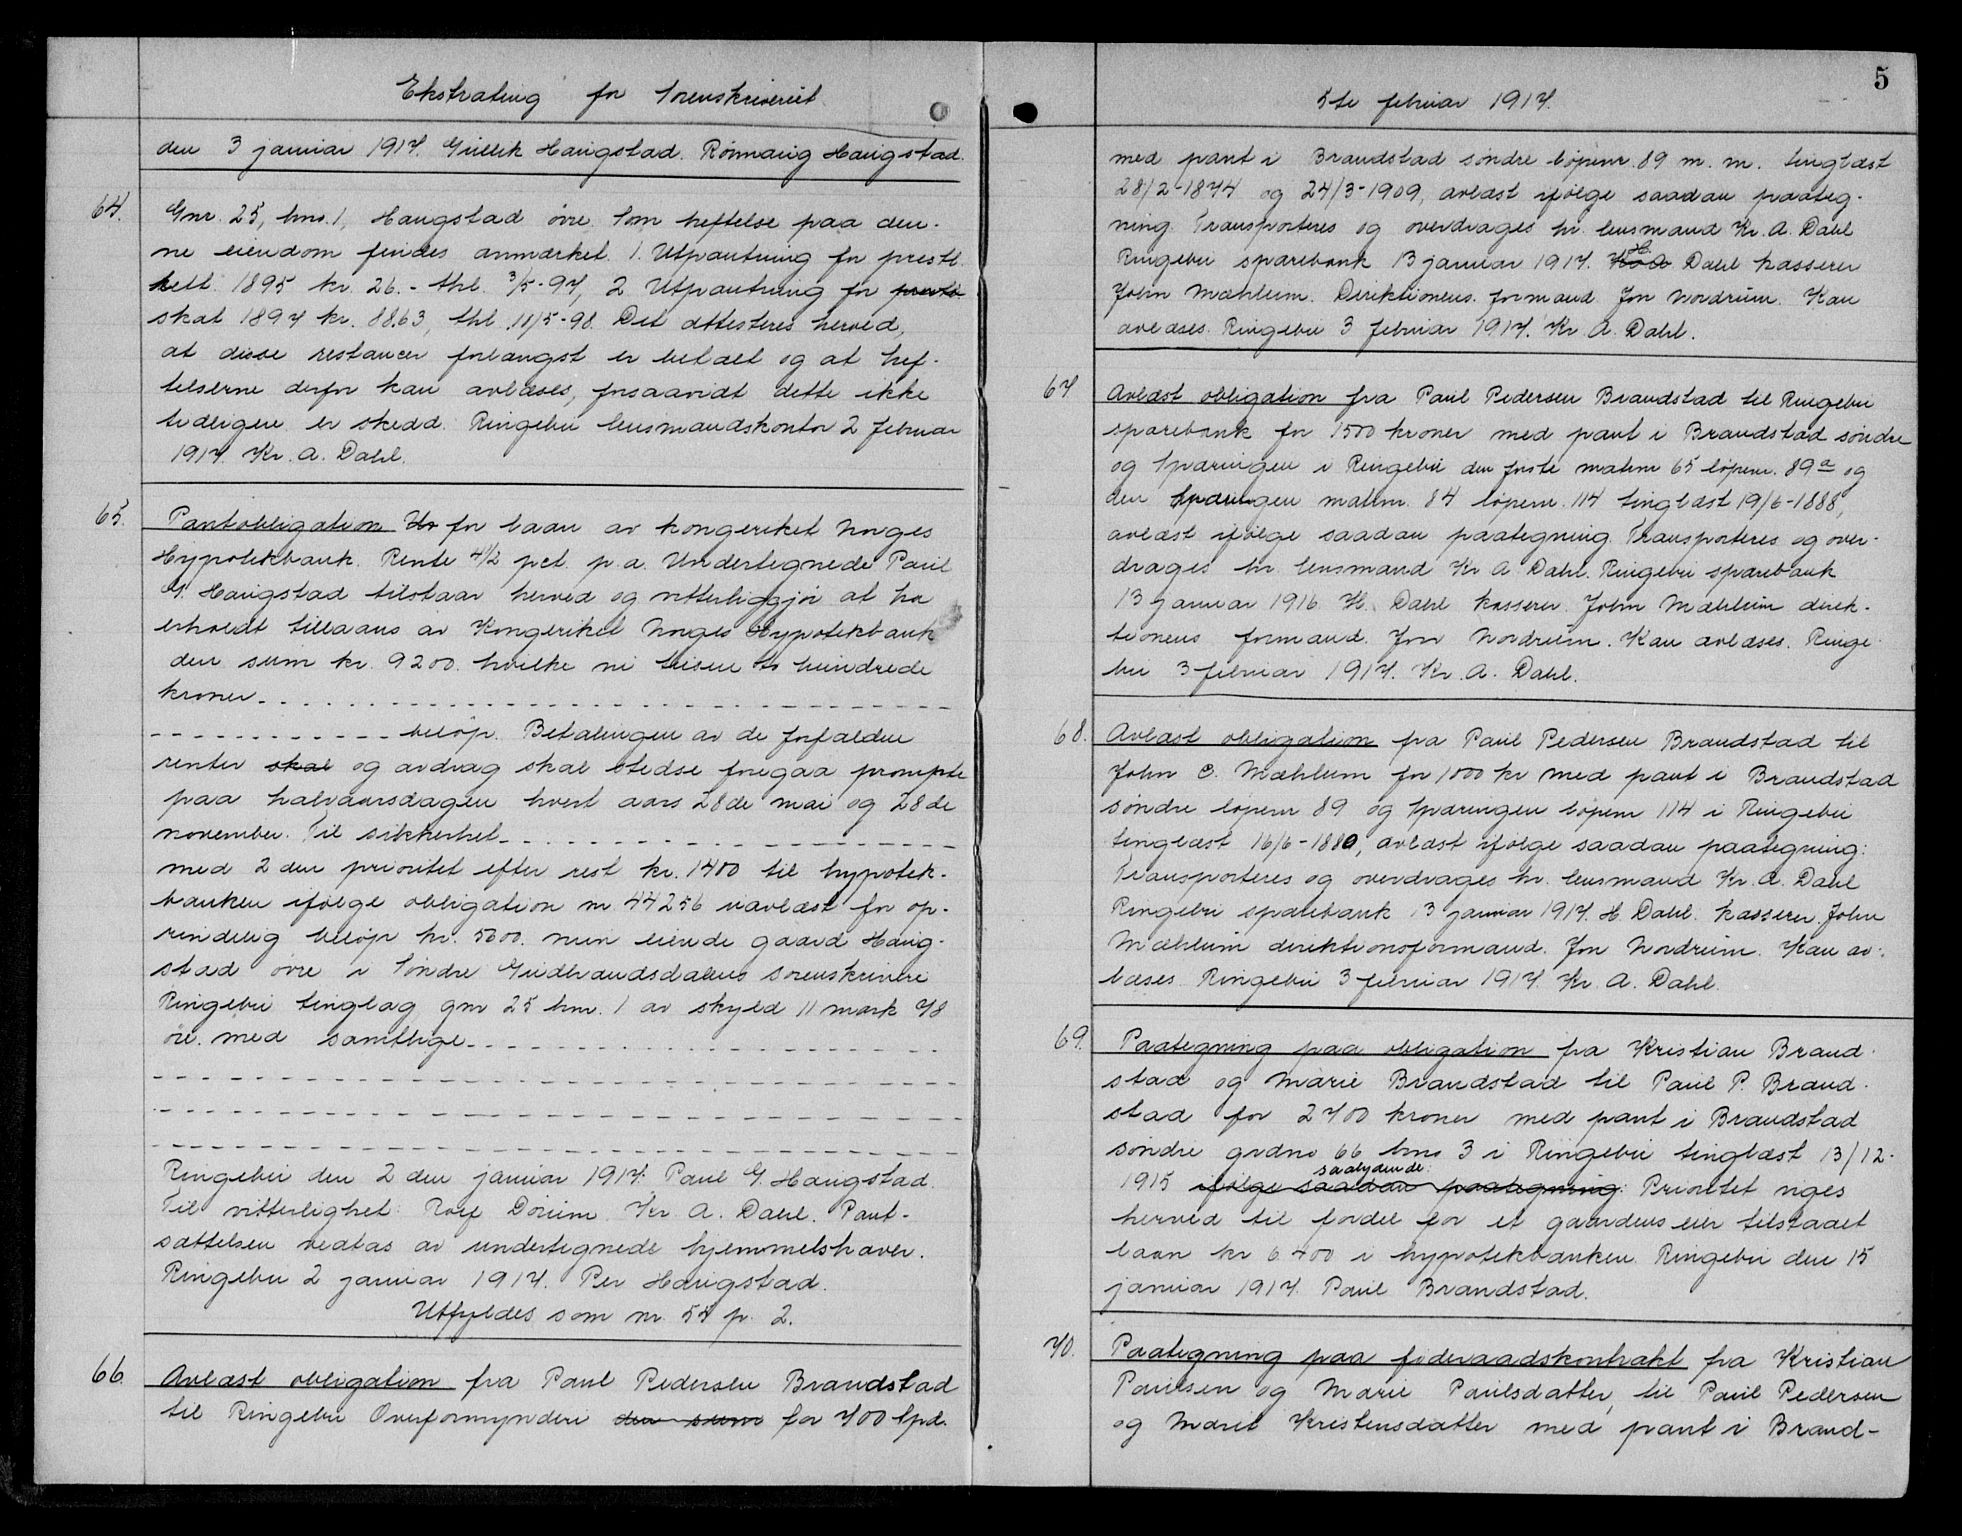 Ekstrating for Sorenskriveriet
den 3 januar 1917. Gullik Haugstad. Rønnaug Haugstad.
64. Gnr. 25, bno. 1, Haugstad øvre. Som heftelse paa den-
ne eiendom findes anmerket. 1. Utpantning for prestl.
rett. 1895 kr. 26.- thl. 3/5-97, 2 Utpantning for
skat 1897 kr. 88.63, thl. 11/5-98. Det attesteres herved,
at disse restancer forlængst er betalt og at hef-
telserne derfor kan avlæses, forsaavidt dette ikke
tidligere er skedd. Ringebu lensmandskontor 2 februar
1917. Kr. A. Dahl.
65. Pantobligation for laan av kongeriket Norges
Hypotekbank. Rente 4 1/2 pct. p.a. Undertegnede Paul
G. Haugstad tilstaar herved og vitterliggjør at ha
erholdt tillaans av Kongeriket Norges Hypotekbank
den sum kr. 9200. hvilke ni tusen to hundrede
kroner
beløp. Betalingen av de forfaldne
renter skal og avdrag skal stedse foregaa prompte
paa halvaarsdagen hvert aars 28de mai og 28de
november. Til sikkerhet
med 2den prioritet efter rest kr. 1400 til hypotek-
banken ifølge obligation nr 44256 uavlæst for op-
rindelig beløp kr. 5600. min eiende gaard Haug-
stad øvre i Søndre Gudbrandsdalens sorenskriveri
Ringebu tinglag gnr 25 bnr. 1 av skyld 11 mark 78
øre. med samtlige
Ringebu den 2den januar 1917. Paul G. Haugstad.
Til vitterlighet: Rolf Dørum. Kr. A. Dahl. Pant-
sættelsen vedtas av undertegnede hjemmelshaver.
Ringebu 2 januar 1917. Per Haugstad.
Utfyldes som nr. 54 p. 2.
66. Avlæst obligation fra Paul Pedersen Brandstad
til Ringebu Overformynderi den sum for 700 Spd.
5
5te februar 1917.
med pant i Brandstad søndre løpenr. 89 m. m. tinglæst
28/2-1874 og 24/3-1909, avlæst ifølge saadan paateg-
ning. Transporteres og overdrages hr. lensmand Kr. A. Dahl
Ringebu sparebank 13 januar 1917. H. Dahl kasserer
John Mæhlum. Direktionens formand Jon Nordrum. Kan
avlæses. Ringebu 3 februar 1917. Kr. A. Dahl.
67. Avlæst obligation fra Paul Pedersen Brandstad til Ringebu
sparebank for 1500 kroner med pant i Brandstad søndre
og Sparingen i Ringebu den første matrnr 65 løpenr. 89a og
den Sparingen matrnr. 84 løpenr. 114 tinglæst 19/6-1888,
avlæst ifølge saadan paategning. Transporteres og over-
drages hr. lensmand Kr A. Dahl. Ringebu sparebank
13 januar 1916. H. Dahl kasserer. John Mæhlum direk-
tionens formand. Jon Nordrum. Kan avlæses. Ringe-
bu 3 februar 1917. Kr. A. Dahl.
68. Avlæst obligation fra Paul Pedersen Brandstad til
John C. Mæhlum for 1000 kr med pant i Brandstad
søndre løpenr 89 og Sparingen løpenr 114 i Ringebu
tinglæst 16/6-1880, avlæst ifølge saadan paategning:
Transporteres og overdrages hr. lensmand Kr. A. Dahl
Ringebu sparebank 13 januar 1917. H. Dahl. kasserer. John
Mæhlum direktionsformand. Jon Nordrum. Kan av-
læses. Ringebu 3 februar 1917. Kr. A. Dahl.
69. Paategning paa obligation fra Kristian Brand-
stad og Marie Brandstad til Paul P. Brand-
stad for 2700 kroner med pant i Brandstad
søndre grdno 66 bno 3 i Ringebu tinglæst 13/12-
saalydende:
1915 ifølge saadan paategning: Prioritet viges
herved til fordel for et gaardens eier tilstaaet
laan kr 6400 i hypotekbanken. Ringebu den 15
januar 1917. Paul Brandstad.
70. Paategning paa føderaadskontrakt fra Kristian
Paulsen og Marie Paulsdatter, til Paul Pedersen
og Marit Kristensdatter med pant i Brand-